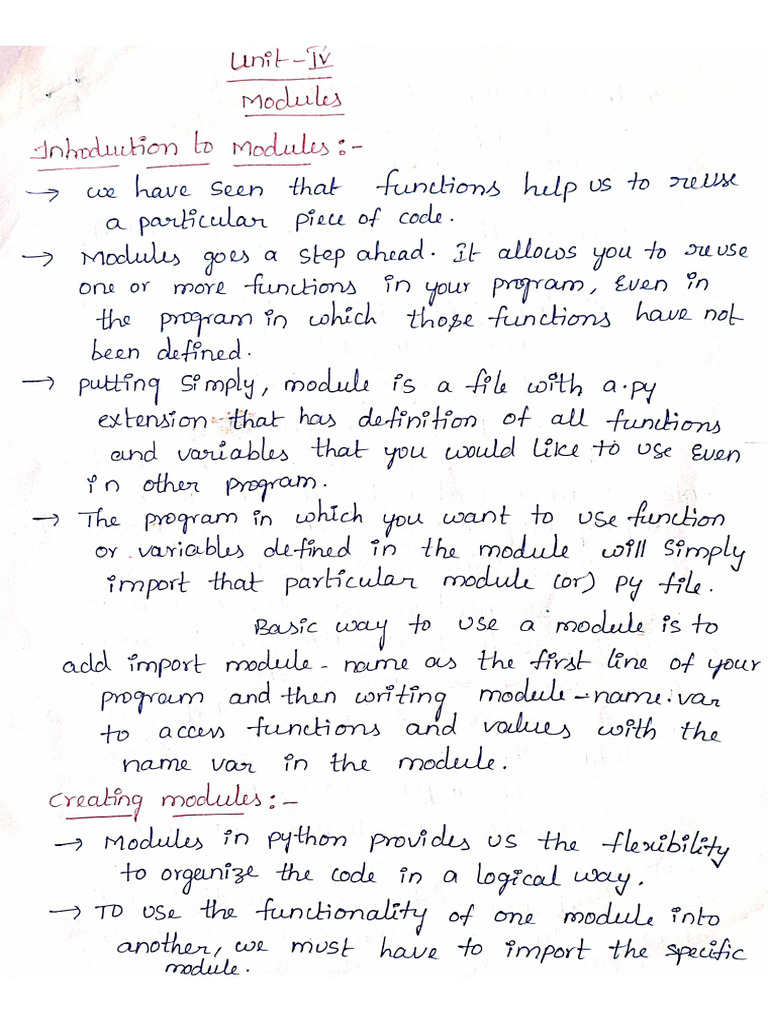 Unit-IV
Modules
Introduction to Modules:-
→ we have seen that functions help us to reuse
a particular piece of code.
→ Modules goes a step ahead. It allows you to reuse
one or more functions in your program, Even in
the program in which those functions have not
been defined.
→ putting simply, module is a file with a.py
extension that has definition of all functions
and variables that you would like to use Even
in other program.
→ The program in which you want to use function
or variables defined in the module will simply
import that particular module (or) py file.
Basic way to use a module is to
add import module-name as the first line of your
program and then writing module-name.var
to access functions and values with the
name var in the module.
Creating modules:-
→ Modules in python provides us the flexibility
to organize the code in a logical way.
→ To use the functionality of one module into
another, we must have to import the specific
module.